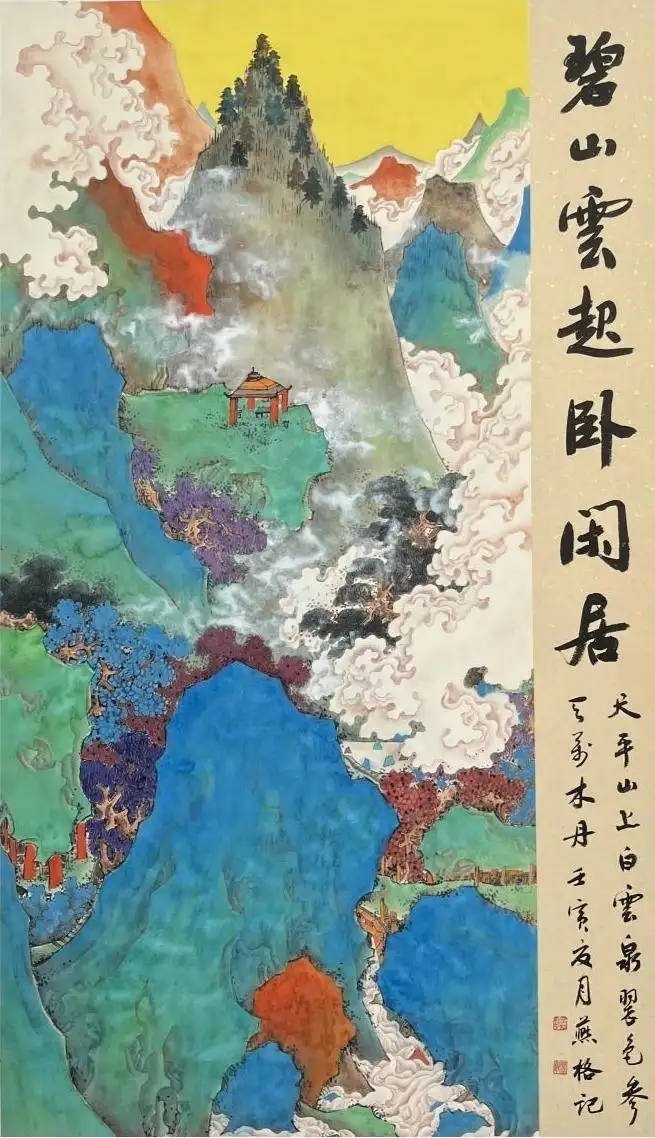 碧山雲起卧閑居
天平山上白雲泉翠色參
天萬木丹壬寅夏月燕格記